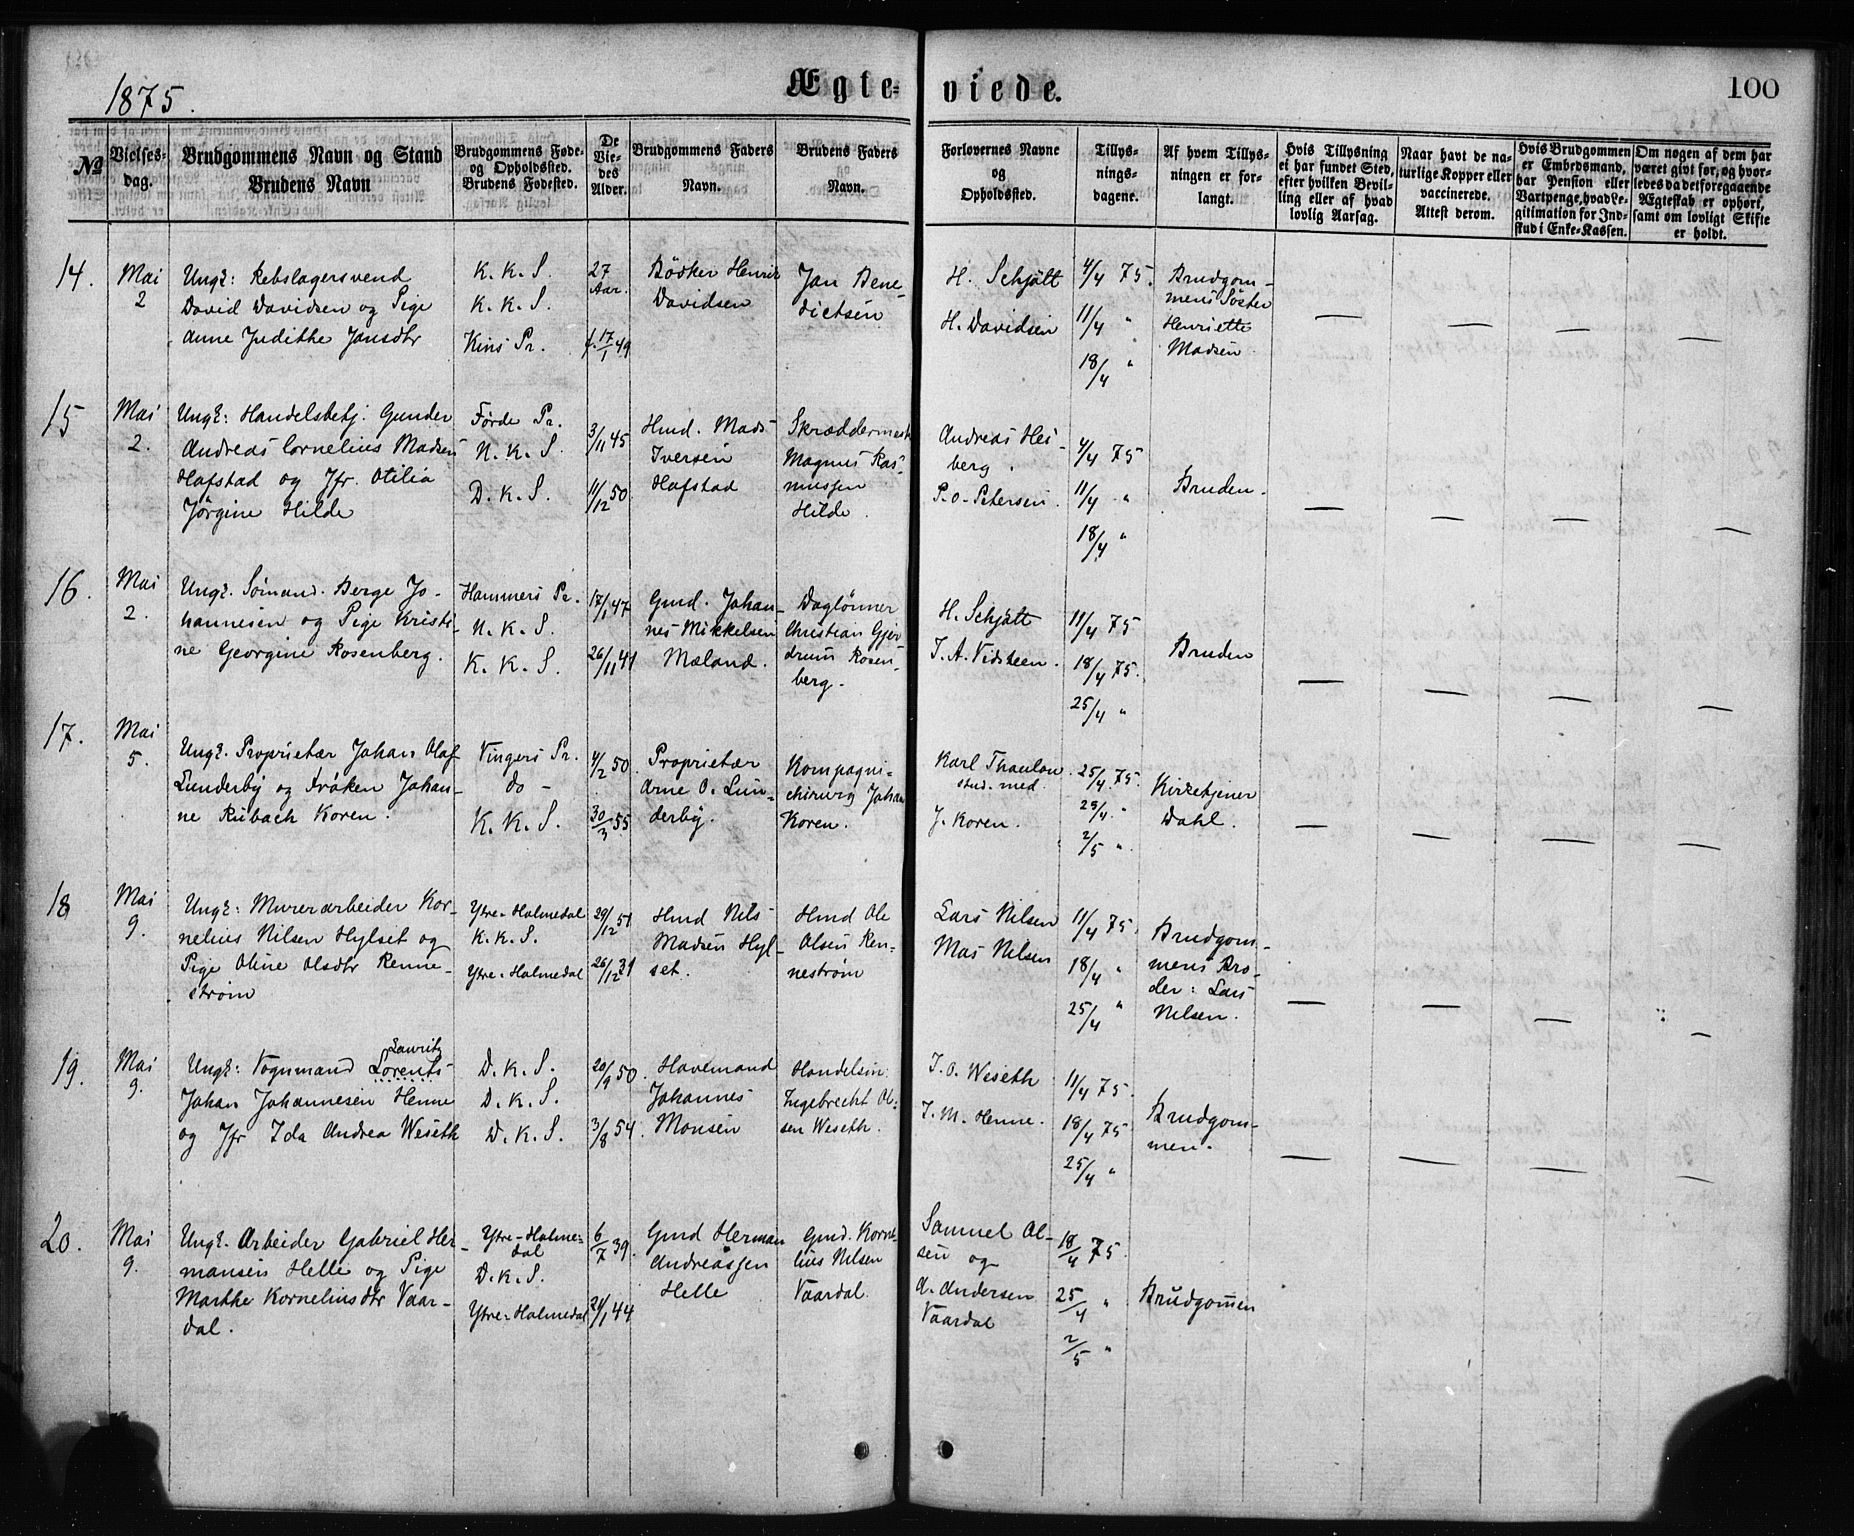 1875.
Ægte-viede.
100
№
Vielses-dag.
Brudgommens Navn og Stand
Brudens Navn
Brudgommens Føde- og Opholdssted.
Brudens Fødested.
De Viedes Alder.
Brudgommens Faders Navn.
Brudens Faders Navn.
Forlovernes Navne og Opholdssted.
Tillysningsdagene.
Af hvem Tillysningen er forlangt.
Hvis Tillysning ei har fundet Sted, efter hvilken Bevilling eller af hvad lovlig Aarsag.
Naar havt de naturlige Kopper eller vaccinerede. Attest derom.
Hvis Brudgommen er Embedsmand, har Pension eller Vartpenge, hvad Legitimation for Indskud i Enke-Kassen.
Om nogen af dem har været givt før, og hvorledes da det foregaaende Ægteskab er ophørt, samt om lovligt Skifte er holdt.
14.
Mai
2
Ungk: Rebslagersvend
David Davidsen og Pige
Anne Judithe Jansdtr
K. K. S.
K. K. S.
Kins Pr.
27
Aar.
f. 17/1 49
Bödker Henrik
Davidsen
Jan Bene-
dictsen
H. Schjött
H. Davidsen
4/4 75.
11/4 "
18/4 "
Brudgom-
mens Söster
Henriette
Madsen.
15
Mai
2.
Ungk: Handelsbetj. Gunder
Andreas Cornelius Madsen
Hafstad og Jfr. Otilia
Jörgine Hilde
Førde Pr.
N. K. S.
D. K. S.
3/11 45
11/12 50.
Hmd. Mads
Iversen
Hafstad
Skræddermest.
Magnus Ras-
mussen
Hilde.
Andreas Hei-
berg.
P. O. Petersen.
4/4 75
11/4 "
18/4 "
Bruden.
16.
Mai
2.
Ungk. Sömand. Berge Jo-
hannesen og Pige Kristi-
ne Georgine Rosenberg.
Hammers Pr.
N. K. S.
K. K. S.
17/1 47
26/11 41
Gmd. Johan-
nes Mikkelsen
Mæland.
Daglönner
Christian Gjer
drum Rosen-
berg.
H. Schjött
J. A. Vidsteen.
11/4 75
18/4 75.
25/4 "
Bruden
17.
Mai
5.
Ungk. Proprietær Johan Olaf
Lunderby og Frøken Johan-
ne Rubach Koren.
Vingers Pr.
do -
K. K. S.
4/2 50.
30/3 55
Proprietær
Arne O. Lun-
derby.
Kompagni-
chirurg Johan
Koren.
Karl Thaulow
stud. med.
J. Koren.
25/4 75.
25/4 "
2/5 "
Kirketjener
Dahl.
18
Mai
9.
Ungk: Murerarbeider Kor-
nelius Nilsen Hylset og
Pige Oline Olsdtr Renne-
strøm
Ytre-Holmedal
K. K. S.
Ytre-Holmedal
29/12 51
26/12 31
Hmd Nils
Madsen Hyl-
set.
Hmd Ole
Olsen Ren-
nestrøm
Lars Nilsen
Mas Nilsen
11/4 75.
18/4 "
25/4 "
Brudgom-
mens Bro-
der: Lars
Nilsen.
19.
Mai
9.
Lauritz
Ungk: Vognmand Lorents
Johan Johannesen Henne
og Jfr Ida Andrea Weseth
D. K. S.
D. K. S.
D. K. S.
20/9 50.
3/8 54.
Havemand
Johannes
Monsen
Handelsm.
Ingebrecht Ol-
sen Weseth.
J. O. Weseth
J. M. Henne.
11/4 75.
18/4 75
25/4 "
Brudgom-
men.
20.
Mai
9.
Ungk. Arbeider Gabriel Her-
mansen Helle og Pige
Marthe Korneliusdtr Vaar-
dal.
Ytre-Holme-
dal
D. K. S.
Ytre-Holmedal
6/7 39.
21/1 44
Gmd Herman
Andreassen
Helle
Gmd. Korne-
lius Nilsen
Vaardal.
Samuel Ol-
sen og
A. Andersen
Vaardal
18/4 75.
25/4 "
2/5 "
Brudgom̄en